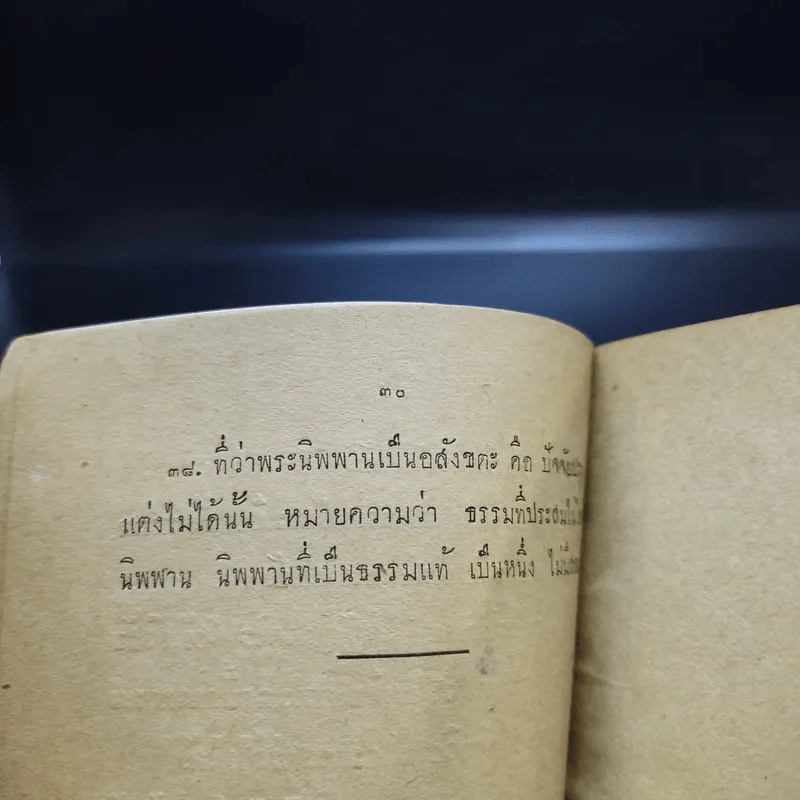 ๓๐
๓๘. ที่ว่าพระนิพพานเป็นอสังขตะ คือ ปัจจัย
แต่งไม่ได้นั้น หมายความว่า ธรรมที่ประสม
นิพพาน นิพพานที่เป็นธรรมแท้ เป็นหนึ่ง ไม่มี